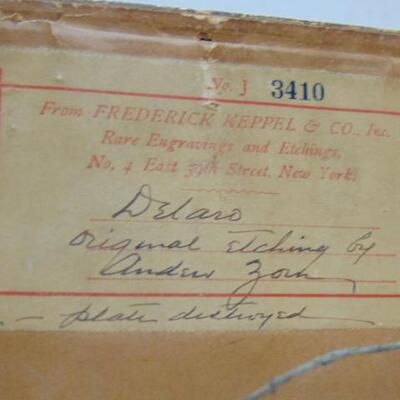 No. J 3410
From FREDERICK KEPPEL & CO., Inc.
Rare Engravings and Etchings,
No. 4 East 39th Street, New York.
Delaro
original etching by
Anders Zorn
- plate destroyed